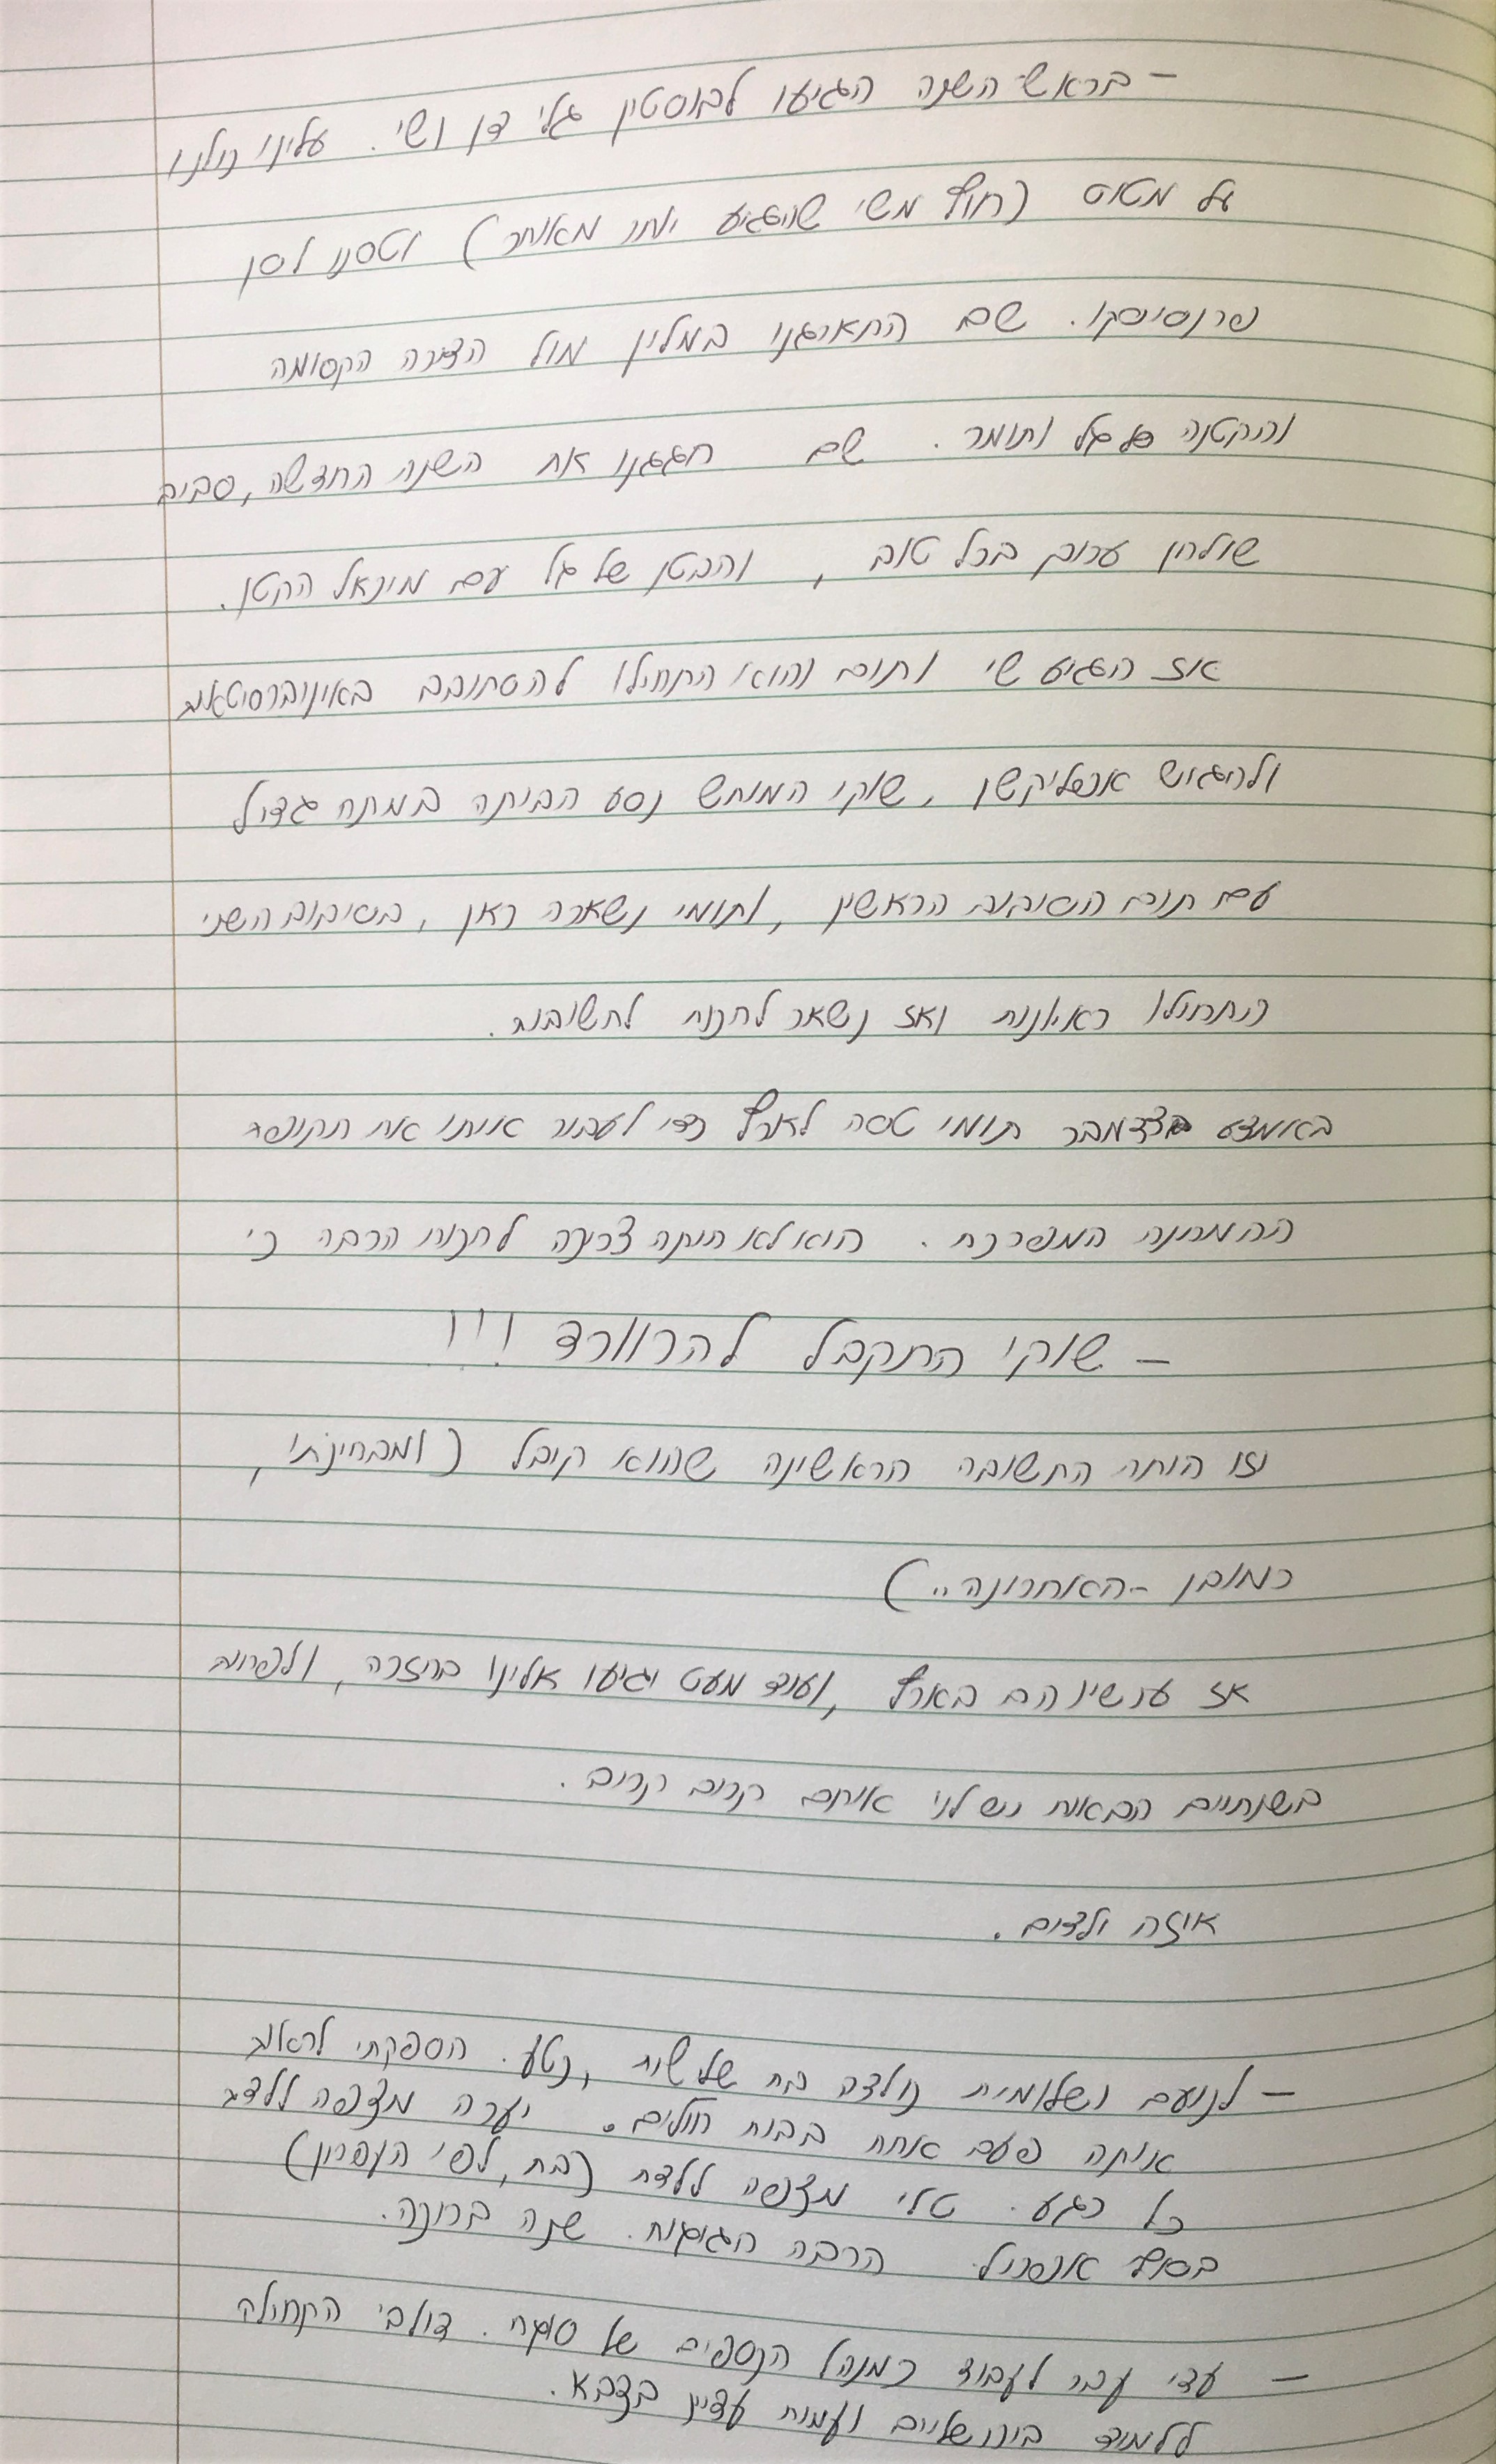 - בראש השנה הגיעו לבוסטין גלי דן ושי. עלינו כולנו
על מטוס (חוץ משי שהגיע יותר מאוחר) וטסנו לסן
פרנסיסקו. שם התארגנו במלון מול הדירה הקסומה
והקטנה של גל ותומר. שם חגגנו את השנה החדשה, סביב
שולחן ערוך בכל טוב, והבטן של גל עם מיכאל הקטן.
אז הגיע שי ותום והוא התחילו להסתובב באוניברסיטאות
ולהגיש אפליקשן, שוקי המותש נסע הביתה במתח גדול
עם תום הסיבוב הראשון, ותומי נשארה כאן, בסיבוב השני
התחילו ראיונות ואז נשאר לחכות לתשובות.
באמצע דצמבר תומי טסה לארץ כדי לעבור איתו את תקופת
ההמתנה המפרכת. הוא לא היתה צריכה לחכות הרבה כי
- שוקי התקבל להרוורד !!!
וזו היתה התשובה הראשונה שהוא קיבל (ומבחינתי,
כמובן - האחרונה..)
אז עכשיו הם בארץ, ועוד מעט יגיעו אלינו בחזרה, ולפחות
בשנתיים הבאות יש לנו אותם קרוב קרוב.
איזה ילדים.
- לנועם ושלומית נולדה בת שלישית, נטע. הספקתי לראות
אותה פעם אחת בבית חולים. יערה מצפה ללדת
כל רגע. טלי מצפה ללדת (בת, לפי הנפיון)
בסוף אפריל. הרבה הגיגות. שנה ברוכה.
- עדי עבר לעבוד כמנהל הכספים של סוקח. דולבי התחילה
ללמוד בירושלים ועמית עדיין בצבא.